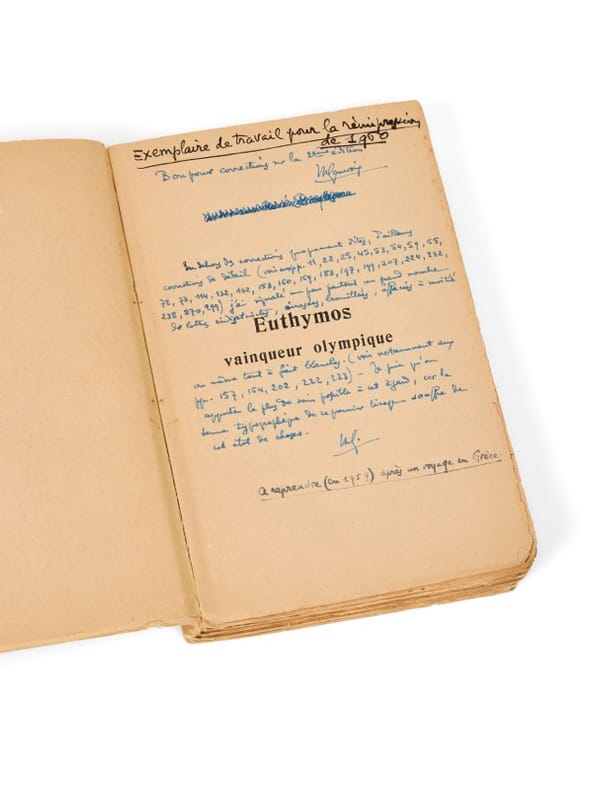 Exemplaire de travail pour la réimpression
de 1960
Bon pour corrections sur la 2ème édition
En dehors de corrections proprement dites, d'ailleurs
corrections de détail (voir pp. 11, 22, 25, 45, 53, 54, 59, 65,
72, 73, 114, 132, 142, 153, 160, 169, 183, 197, 199, 207, 224, 232,
238, 270, 299) j'ai signalé un peu partout un grand nombre
de lettres indistinctes, écrasées, crouillées, effacées à moitié
Euthymos
vainqueur olympique
ou même tout à fait blanches. (voir notamment aux
pp. 157, 164, 202, 222, 223) – Je prie qu'on
apporte le plus de soin possible à cet égard, car la
tenue typographique de ce premier tirage souffre de
cet état de choses.
MG.
à reprendre (en 1959) après un voyage en Grèce.